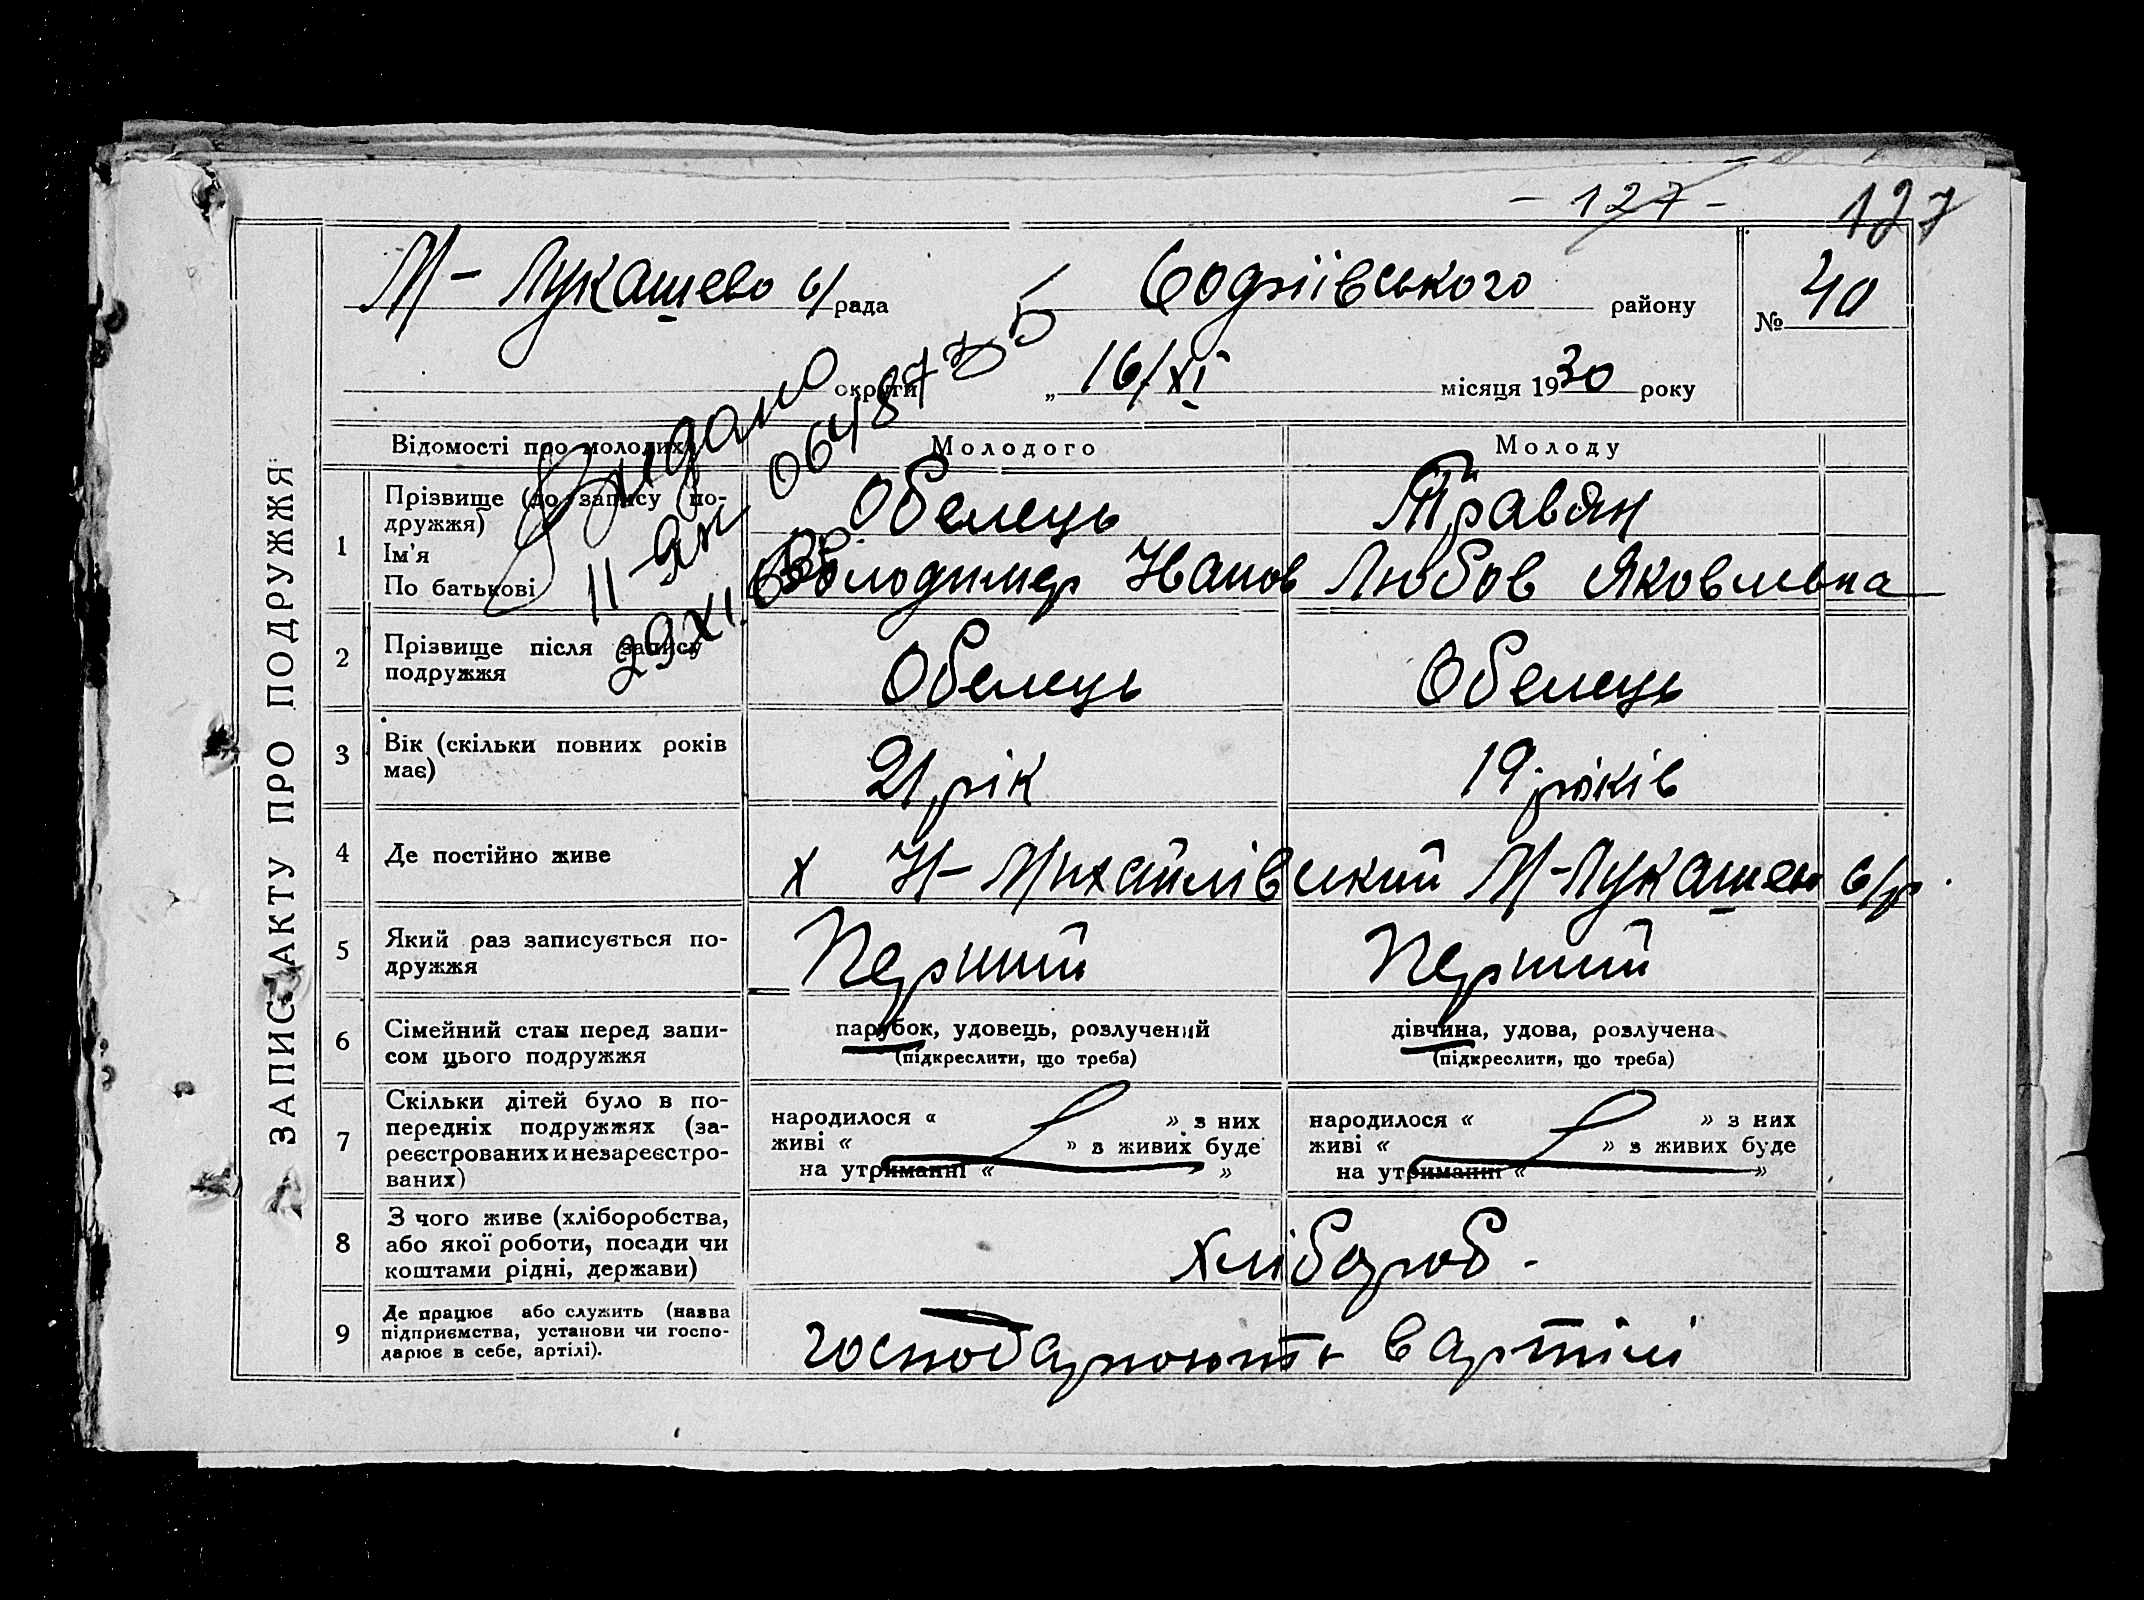 - 127 -
127
М - Лукашево с/рада Софіївського району
№ 40
округи „ 16/XI місяця 1930 року
Видано
11-ЯК 064877
29 XI.
ЗАПИС АКТУ ПРО ПОДРУЖЖЯ
Відомості про молодих Молодого Молоду
1 Прізвище (до запису подружжя) Обелець Травян
Ім'я
По батькові Володимер Іванов Любов Яковлевна
2 Прізвище після запису Обелець Обелець
подружжя
3 Вік (скільки повних років 21 рік 19 років
має)
4 Де постійно живе х Н- Михайлівський М-Лукашево с/р.
5 Який раз записується по- Перший Перший
дружжя
6 Сімейний стан перед запи- парубок, удовець, розлучений дівчина, удова, розлучена
сом цього подружжя (підкреслити, що треба) (підкреслити, що треба)
7 Скільки дітей було в по-
передніх подружжях (за- народилося « » з них народилося « » з них
реєстрованих и незареєстро- живі « » з живих буде живі « » з живих буде
ваних) на утриманні « » на утриманні « »
8 З чого живе (хліборобства,
або якої роботи, посади чи хлібороб -
коштами рідні, держави)
9 Де працює або служить (назва
підприємства, установи чи госпо- господарюють в артілі
дарює в себе, артілі).